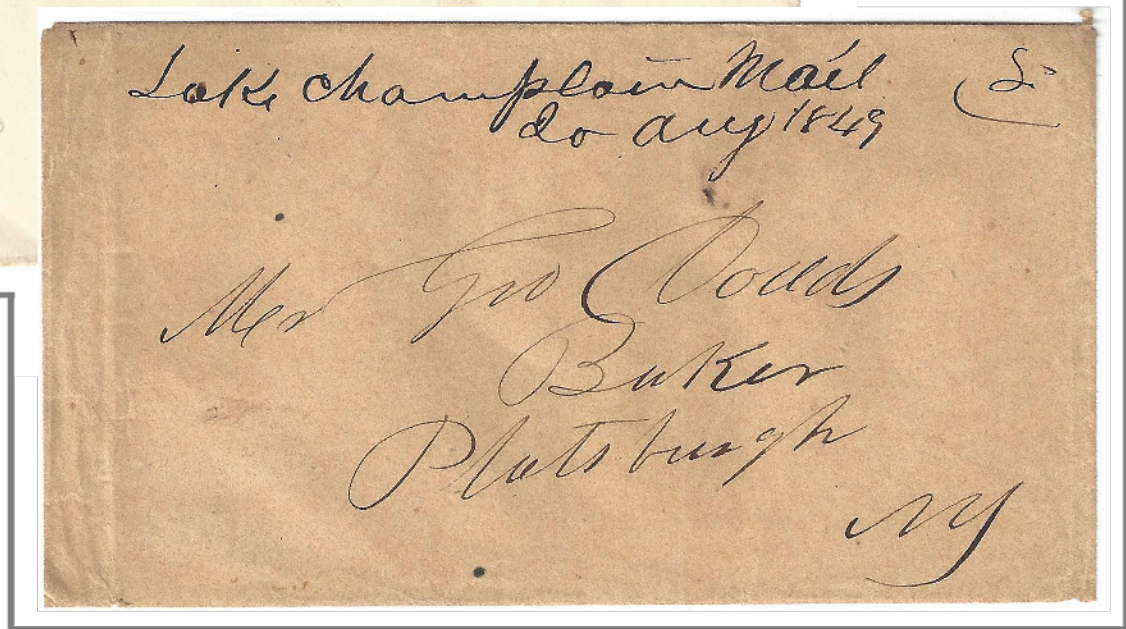 Lake Champlain Mail 5
20 Aug 1849
Mr Geo Douds
Baker
Plattsburgh
NY